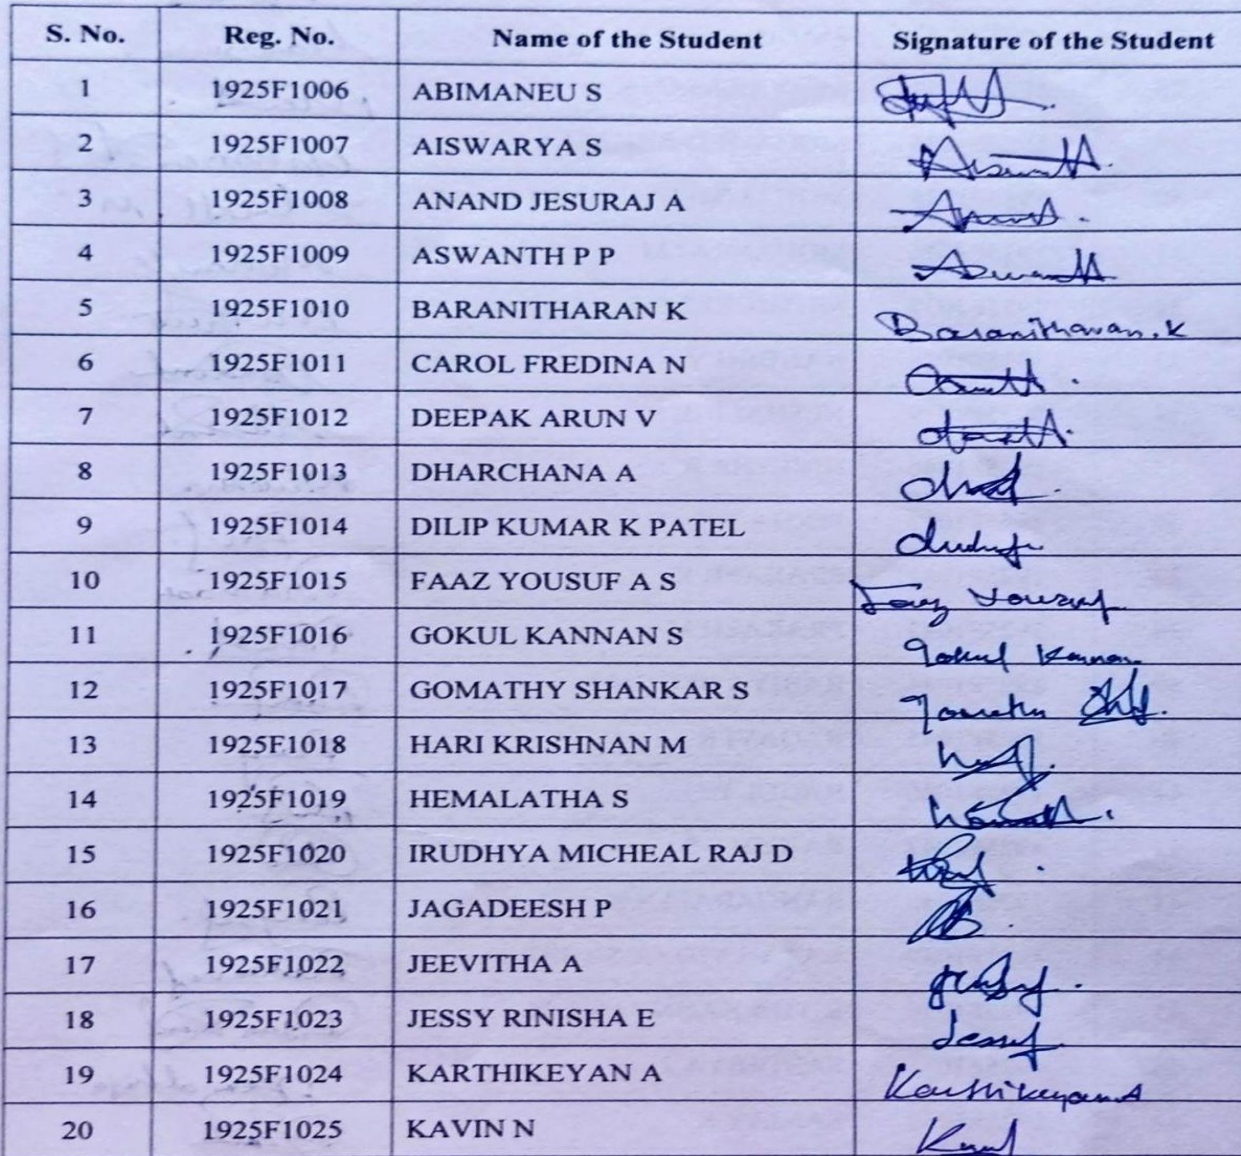 S. No. Reg. No. Name of the Student Signature of the Student
1 1925F1006 ABIMANEU S
2 1925F1007 AISWARYA S
3 1925F1008 ANAND JESURAJ A Anand.
4 1925F1009 ASWANTH P P
5 1925F1010 BARANITHARAN K Baranitharan.K
6 1925F1011 CAROL FREDINA N
7 1925F1012 DEEPAK ARUN V
8 1925F1013 DHARCHANA A
9 1925F1014 DILIP KUMAR K PATEL
10 1925F1015 FAAZ YOUSUF A S Faaz Yousuf
11 1925F1016 GOKUL KANNAN S Gokul Kannan
12 1925F1017 GOMATHY SHANKAR S
13 1925F1018 HARI KRISHNAN M
14 1925F1019 HEMALATHA S
15 1925F1020 IRUDHYA MICHEAL RAJ D
16 1925F1021 JAGADEESH P
17 1925F1022 JEEVITHA A
18 1925F1023 JESSY RINISHA E Jessy
19 1925F1024 KARTHIKEYAN A Karthikeyan A
20 1925F1025 KAVIN N